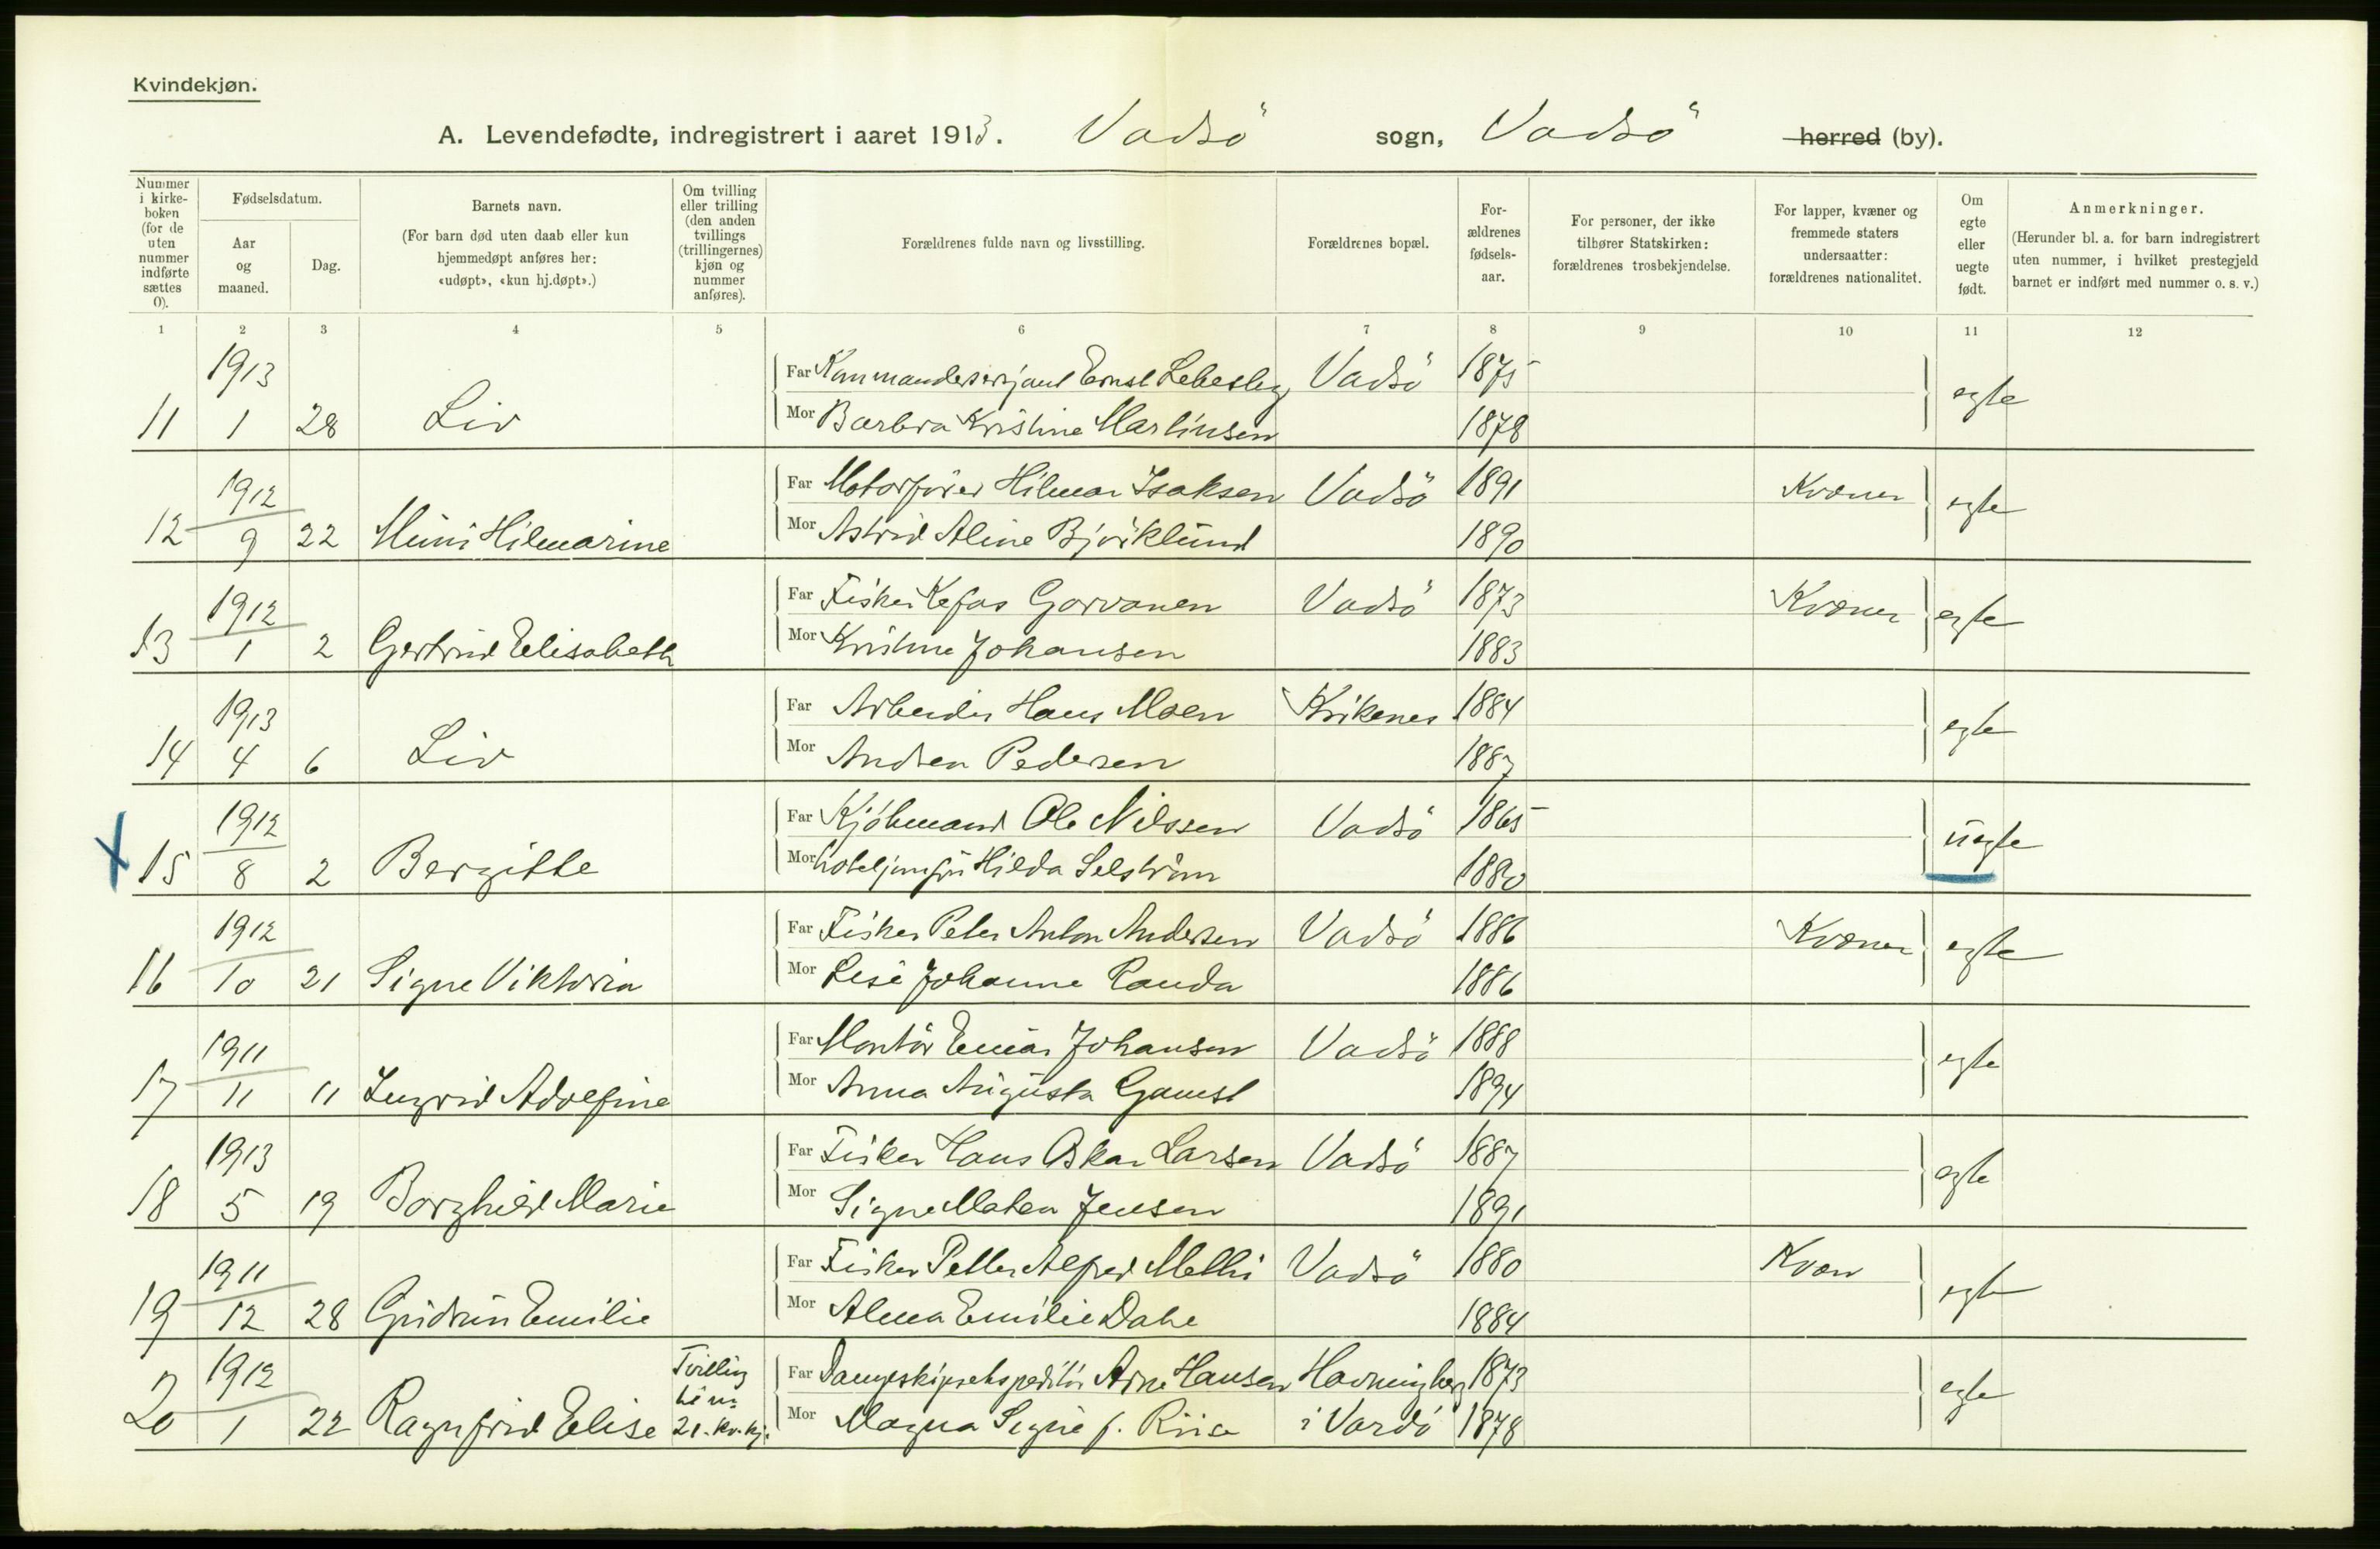 Kvindekjøn.
A. Levendefødte, indregistrert i aaret 1913. Vadsö sogn, Vadsö herred (by).
Nummer i kirke-boken (for de uten nummer indførte sættes 0).
Fødselsdatum.
Aar og maaned.
Dag.
Barnets navn.
(For barn død uten daab eller kun hjemmedøpt anføres her: «udøpt», «kun hj.døpt».)
Om tvilling eller trilling (den anden tvillings (trillingernes) kjøn og nummer anføres).
Forældrenes fulde navn og livsstilling.
Forældrenes bopæl.
For-ældrenes fødsels-aar.
For personer, der ikke tilhører Statskirken: forældrenes trosbekjendelse.
For lapper, kvæner og fremmede staters undersaatter: forældrenes nationalitet.
Om egte eller uegte født.
Anmerkninger.
(Herunder bl. a. for barn indregistrert uten nummer, i hvilket prestegjeld barnet er indført med nummer o. s. v.)
1 2 3 4 5 6 7 8 9 10 11 12
1913 Far Kommandersersjant Ernst Lebesby Vadsö 1875 egte
11 1 28 Liv Mor Barbra Kristine Martinsen 1878
1912 Far Motorförer Hilmar Isaksen Vadsö 1891 Kvæner egte
12 9 22 Mimi Hilmarine Mor Astrid Aline Björklund 1890
1912 Far Fisker Kefas Gorvanen Vadsö 1873 Kvæner egte
13 1 2 Gertrud Elisabeth Mor Kristine Johansen 1883
1913 Far Arbeider Hans Moen Kirkenes 1884 egte
14 4 6 Liv Mor Andrea Pedersen 1887
1912 Far Kjöbmand Ole Nilssen Vadsö 1865 uegte
15 8 2 Bergitte Mor hoteljomfru Hilda Selström 1880
1912 Far Fisker Peter Anton Andersen Vadsö 1886 Kvæner egte
16 10 21 Signe Viktoria Mor Lise Johanne Randa 1886
1911 Far Montör Einar Johansen Vadsö 1888 egte
17 11 11 Ingrid Adolfine Mor Anna Augusta Gamst 1894
1913 Far Fisker Hans Oskar Larsen Vadsö 1887 egte
18 5 19 Borghild Marie Mor Signe Maten Jensen 1891
1911 Far Fisker Petter Alfred Methi Vadsö 1880 Kvæn egte
19 12 28 Gudrun Emilie Mor Alma Emilie Dahe 1884
1912 Tvilling til nr. 21. kv.kj. Far Dampskipsekspeditör Arne Hansen Havningberg 1873 egte
20 1 22 Ragnfrid Elise Mor Magna Signe f. Riise i Vardö 1878